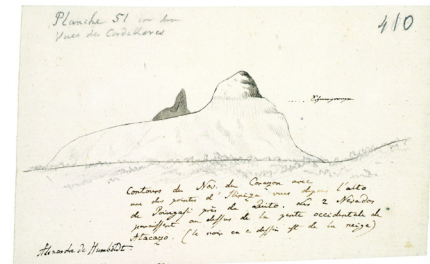 Planche 51
Vues des Cordillères
410
Contours du Nev. du Corazon avec
une des pointes d'
de près de Quito. Les 2 Nevados
paroissent au dessus de la pente occidentale de
Atacazo. (le noir en e dessin est de la neige)
Alexandre de Humboldt